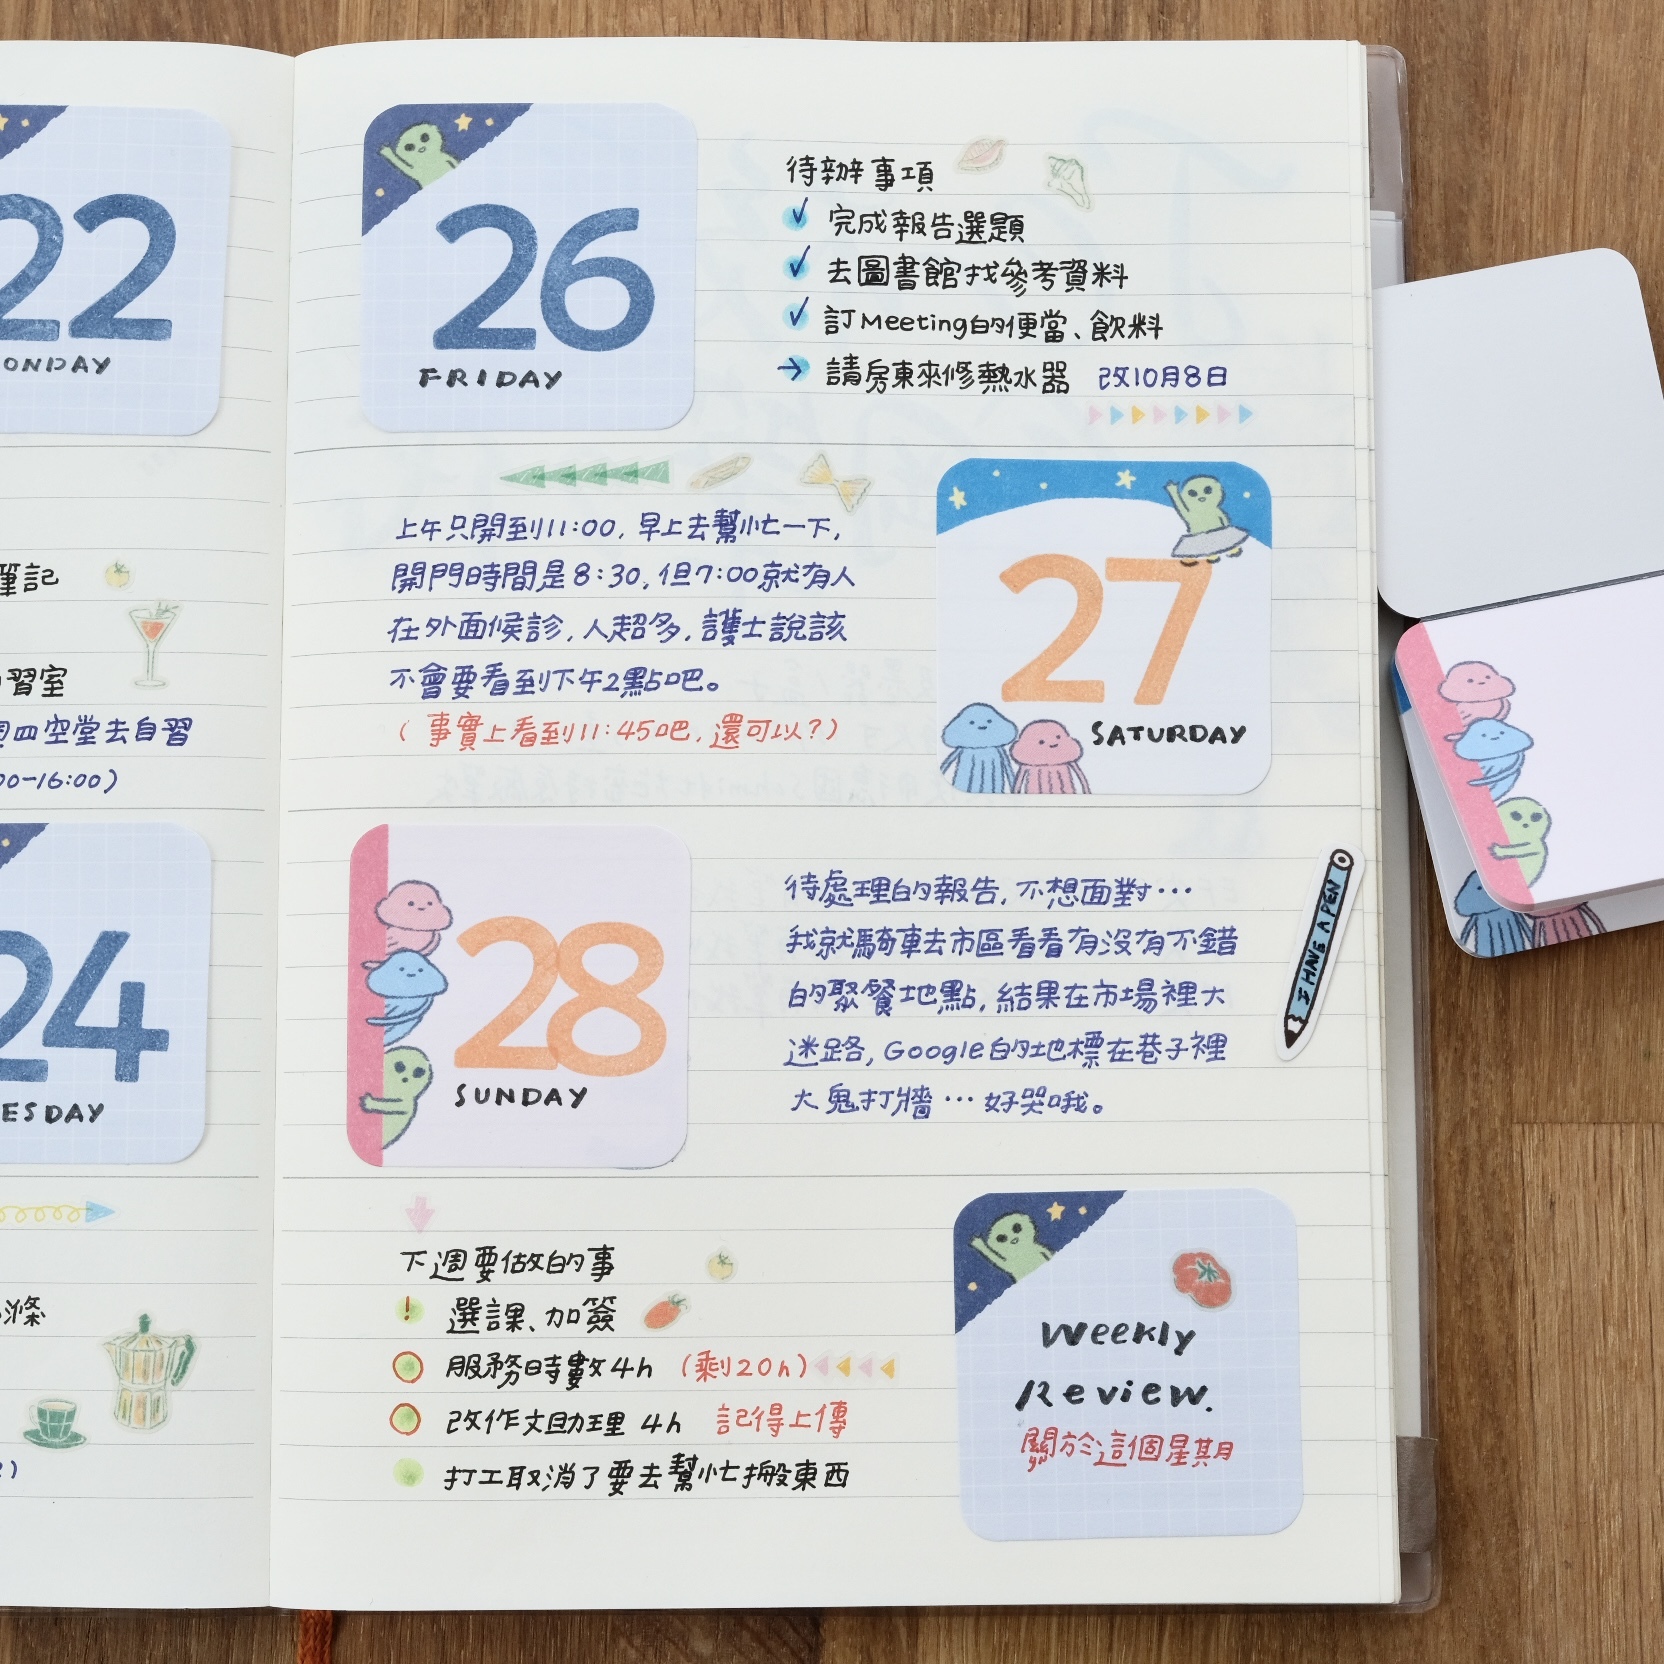 22
ONDAY
筆記
習室
四空堂去自習
00-16:00)
24
ESDAY
26
FRIDAY
待辦事項
✓ 完成報告選題
✓ 去圖書館找參考資料
✓ 訂Meeting的便當、飲料
→ 請房東來修熱水器 改10月8日
上午只開到11:00, 早上去幫忙一下,
開門時間是8:30, 但7:00就有人
在外面候診, 人超多, 護士說該
不會要看到下午2點吧。
(事實上看到11:45吧, 還可以?)
27
SATURDAY
28
SUNDAY
待處理的報告, 不想面對…
我就騎車去市區看看有沒有不錯
的聚餐地點, 結果在市場裡大
迷路, Google的地標在巷子裡
大鬼打牆…好哭哦。
I HAVE A PEN
下週要做的事
! 選課、加簽
服務時數4h (剩20h)
改作文助理 4h 記得上傳
打工取消了要去幫忙搬東西
Weekly
Review.
關於這個星期